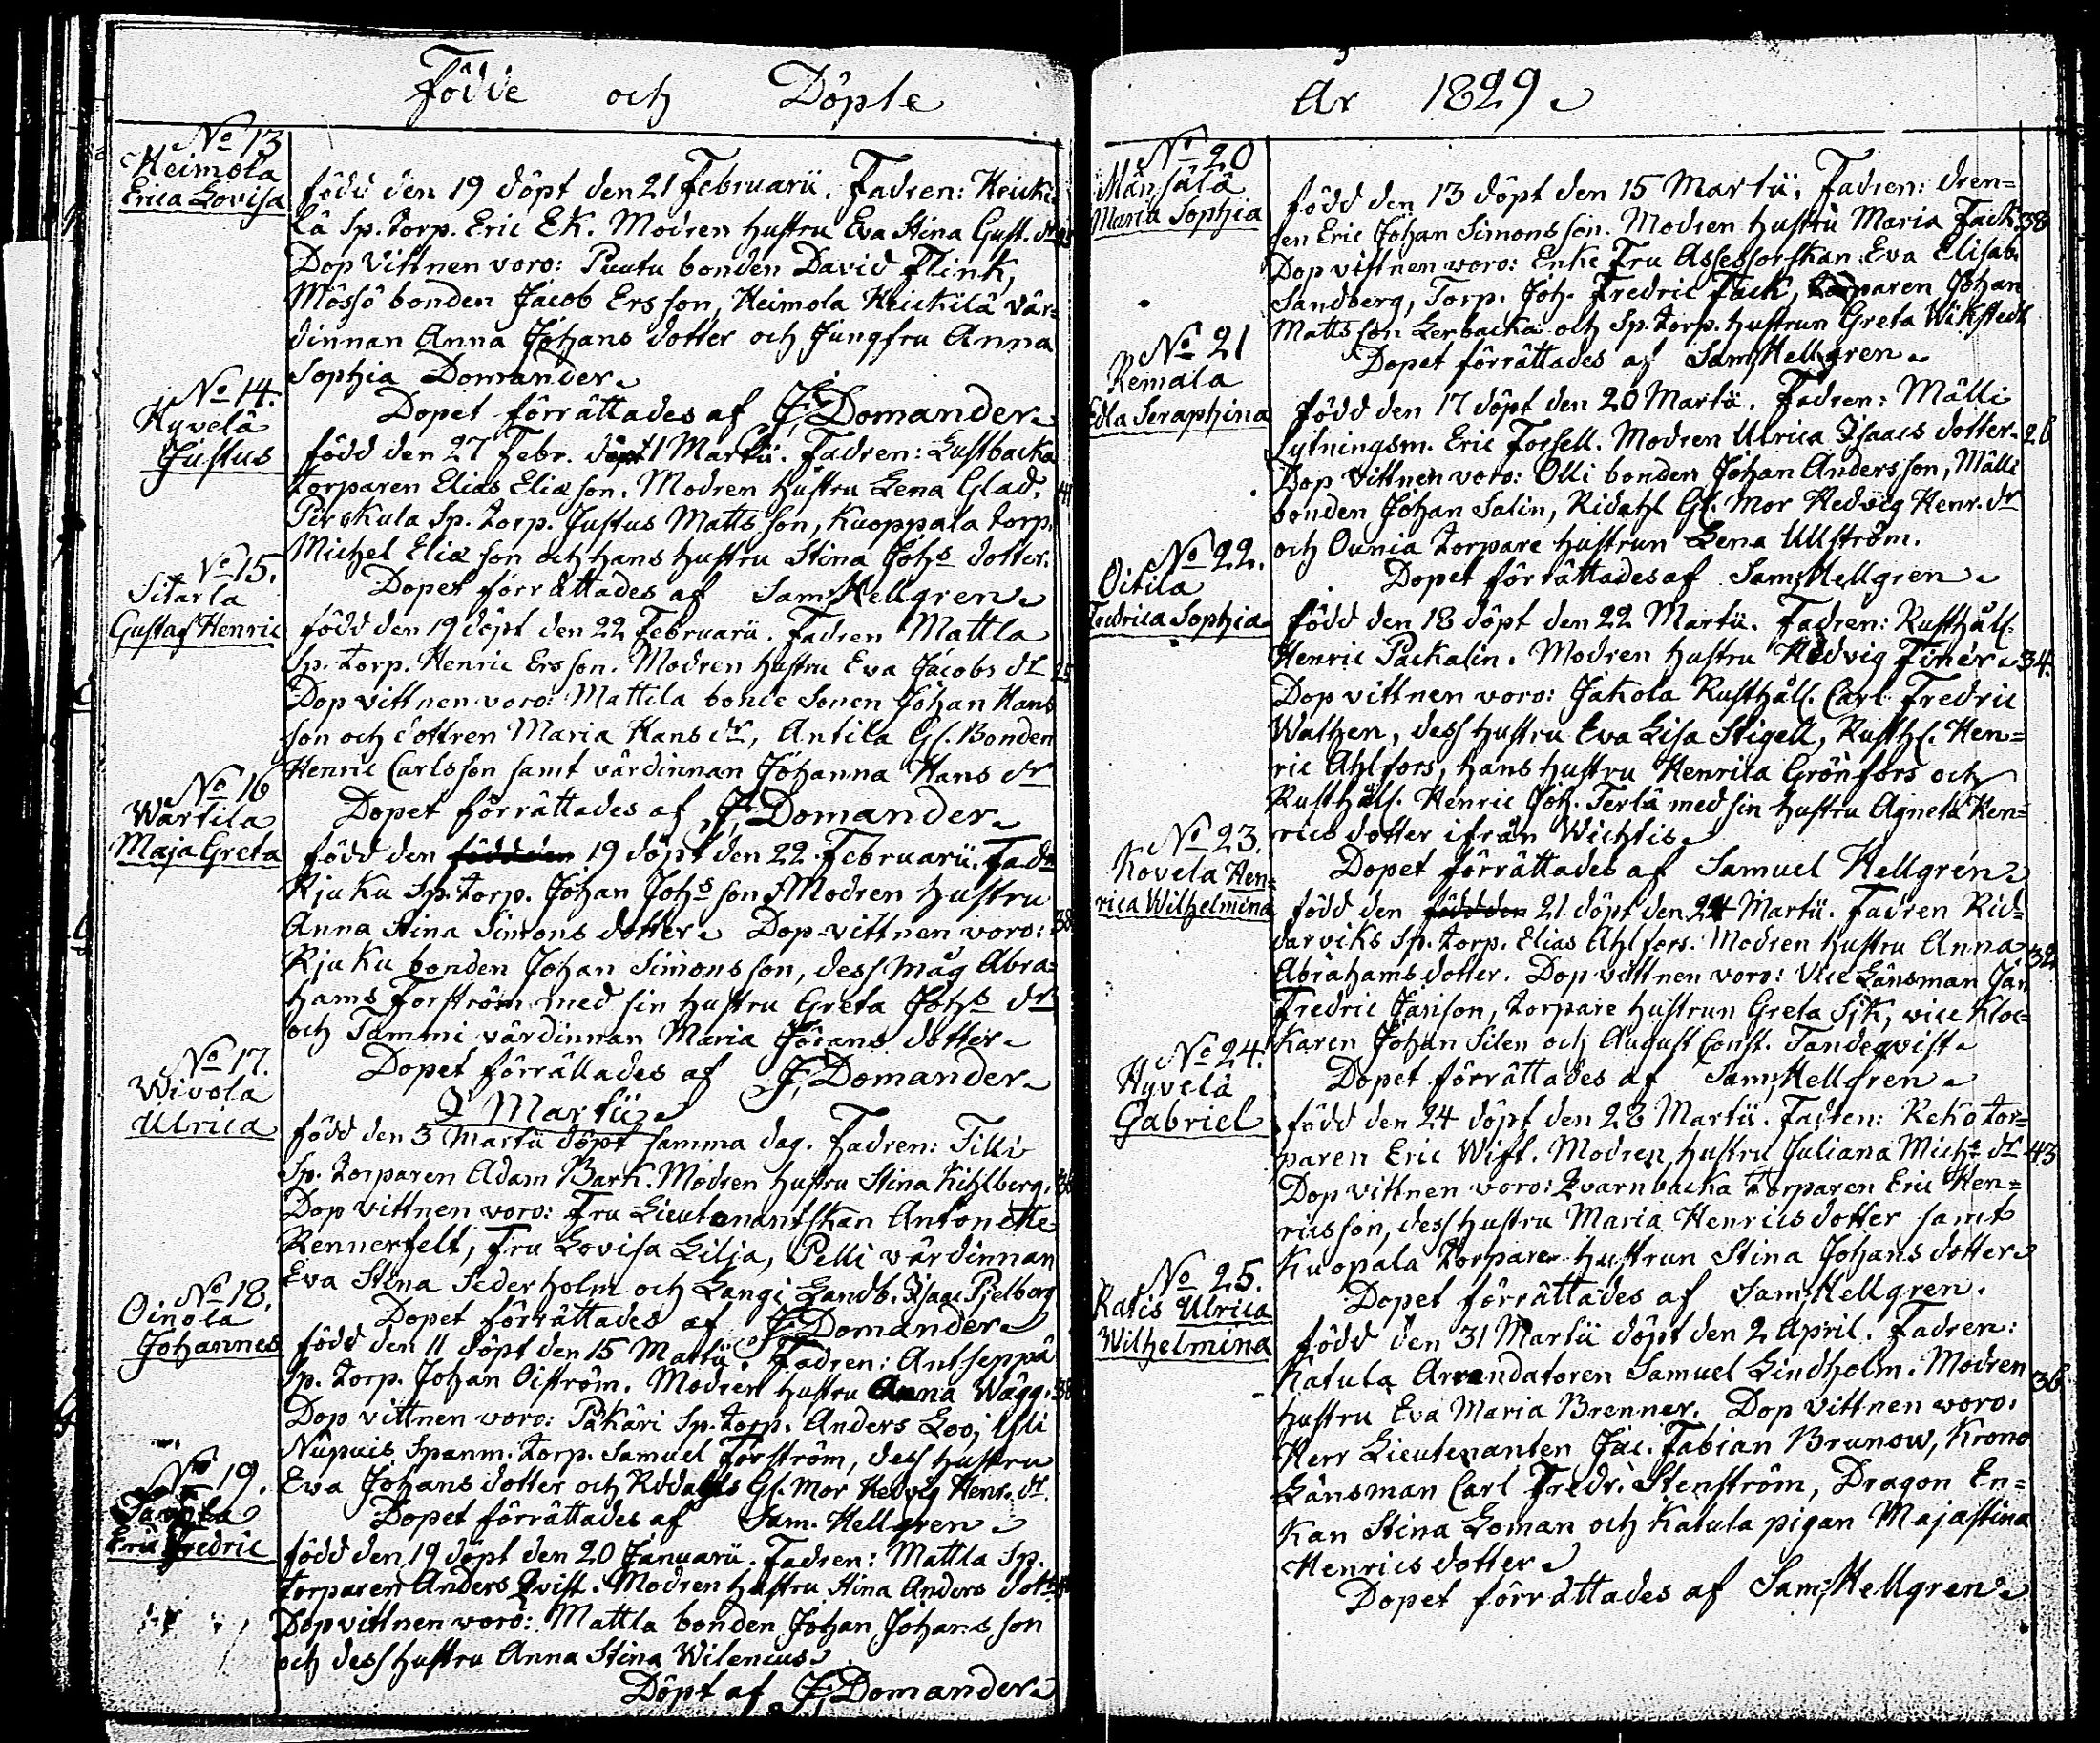 Födde och Döpte
No 13
Heimola
Erica Lovisa
född den 19 döpt den 21 Februarii. Fadren: Heicki-
lä Sp. torp. Eric Ek. Modren hustru Eva Stina Gust. dr
Dop vittnen voro: Puutu bonden David Flink,
Mössö bonden Jacob Ersson, Heimola Heickilä vär-
dinnan Anna Johans dotter och Jungfru Anna
Sophia Domander.
Dopet förrättades af J. Domander.
No 14.
Hyvelä
Justus
född den 27 Febr. döpt 1 Martii. Fadren: Lustbacka
torparen Elias Eliæ son. Modren hustru Lena Glad. 41
Perskula Sp. torp. Justus Matts son, Kuoppala torp.
Michel Eliæ son och hans hustru Stina Johs dotter.
Dopet förrättades af Sam. Hellgren.
No 15.
Sitarla
Gustaf Henric
född den 19 döpt den 22 Februarii. Fadren Mattla
Sp. torp. Henric Ersson. Modren hustru Eva Jacobs dr 25
Dop vittnen voro: Mattila bonde Sonen Johan Hans
son och dottren Maria Hans dr, Antila Gl. Bonden
Henric Carlsson samt värdinnan Johanna Hans dr
Dopet förrättades af J. Domander.
No 16
Wärtila
Maja Greta
född den född den 19 döpt den 22 Februarii. Fadn
Rjuku Sp. torp. Johan Johs son Modren hustru
Anna Stina Simons dotter. Dop-vittnen voro: 38
Rjuku bonden Johan Simonsson, dess måg Abra-
hams Forström med sin hustru Greta Johs dr
och Tammi värdinnan Maria Görans dotter.
Dopet förrättades af J. Domander.
No 17.
Wivola
Ulrica
I Martii
född den 3 Martii döpt samma dag. Fadren: Tilli
Sp. torparen Adam Bark. Modren hustru Stina Kihlberg.
Dop vittnen voro: Fru Lieutenantskan Antonette
Rennerfelt, Fru Lovisa Lilja, Pelli värdinnan
Eva Stina Sederholm och Langi Landb. Isaac Pjelborg
Dopet förrättades af J. Domander
No 18.
Oinola
Johannes
född den 11 döpt den 15 Martii. Fadren: Antseppä
Sp. torp. Johan Öiström. Modren hustru Anna Wägg. 38
Dop vittnen voro: Päkäri Sp. torp. Anders Loo, Ylli
Nupuis Spanm. torp. Samuel Forström, dess hustru
Eva Johans dotter och Rddahls Gl. Mor Hedvig Henr. dr.
Dopet förrättades af Sam. Hellgren
No 19.
Eric Fredric
född den 19 döpt den 20 Januarii. Fadren: Mattla Sp.
torparen Anders Qvist. Modren hustru Stina Anders dott.
Dop vittnen voro: Mattla bonden Johan Johans son
och dess hustru Anna Stina Wilenius
Döpt af J. Domander
År 1829.
No 20
Mänsälä
Maria Sophia
född den 13 döpt den 15 Martii. Fadren: dren-
gen Eric Johan Simonsson. Modren hustru Maria Fack. 38
Dop vittnen voro: Enke Fru Assessorskan Eva Elisab.
Sandberg, Torp. Joh. Fredric Fack, torparen Johan
Mattsson Lerbacka och Sp. torp. hustrun Greta Wikstedt
Dopet förrättades af Sam. Hellgren.
No 21
Remala
Edla Seraphina
född den 17 döpt den 20 Martii. Fadren: Mälli
Lytningsm. Eric Forsell. Modren Ulrica Isaacs dotter. 26
Dop vittnen voro: Olli bonden Johan Andersson, Mälli
bonden Johan Salin, Ridahl Gl. Mor Hedvig Henr. dr
och Ounia torpare hustrun Lena Ullström.
Dopet förrättades af Sam. Hellgren
No 22.
Oitila
Fredrica Sophia
född den 18 döpt den 22 Martii. Fadren: Rusthåll.
Henric Packalin. Modren hustru Hedvig Finér. 34.
Dop vittnen voro: Jakola Rusthåll. Carl Fredric
Walhen, dess hustru Eva Lisa Stigell, Rusth. Hen-
ric Ahlfors, hans hustru Henrica Grönfors och
Rusthåll. Henric Joh. Terlä med sin hustru Agneta Hen-
rics dotter ifrån Wichtis.
Dopet förrättades af Samuel Hellgren
No 23.
Kovela Hen-
rica Wilhelmina
född den född den 21 döpt den 24 Martii. Fadren Rid-
darviks Sp. torp. Elias Ahlfors. Modren hustru Anna 32
Abrahams dotter. Dop vittnen voro: Vice Länsman Jan
Fredric Janson, torpare hustrun Greta Sjk, vice Kloc-
karen Johan Silen och August Const. Tandeqvist
Dopet förrättades af Sam. Hellgren
No 24.
Hyvelä
Gabriel
född den 24 döpt den 28 Martii. Fadren: Reko tor-
paren Eric Wift. Modren hustru Juliana Michs dr 43
Dop vittnen voro: Qvarnbacka Torparen Eric Hen-
ricsson, dess hustru Maria Henricsdotter samt
Kuopala torpare hustrun Stina Johans dotter
Dopet förrättades af Sam. Hellgren.
No 25.
Ratis Ulrica
Wilhelmina
född den 31 Martii döpt den 2 April. Fadren:
Katula Arrendatoren Samuel Lindholm. Modren 36
hustru Eva Maria Brenner. Dop vittnen voro:
Herr Lieutenanten Jac. Fabian Brunow, Krono
Länsman Carl Fredr. Stenström, Dragon En-
kan Stina Loman och Katula pigan Majastina
Henrics dotter
Dopet förrättades af Sam. Hellgren